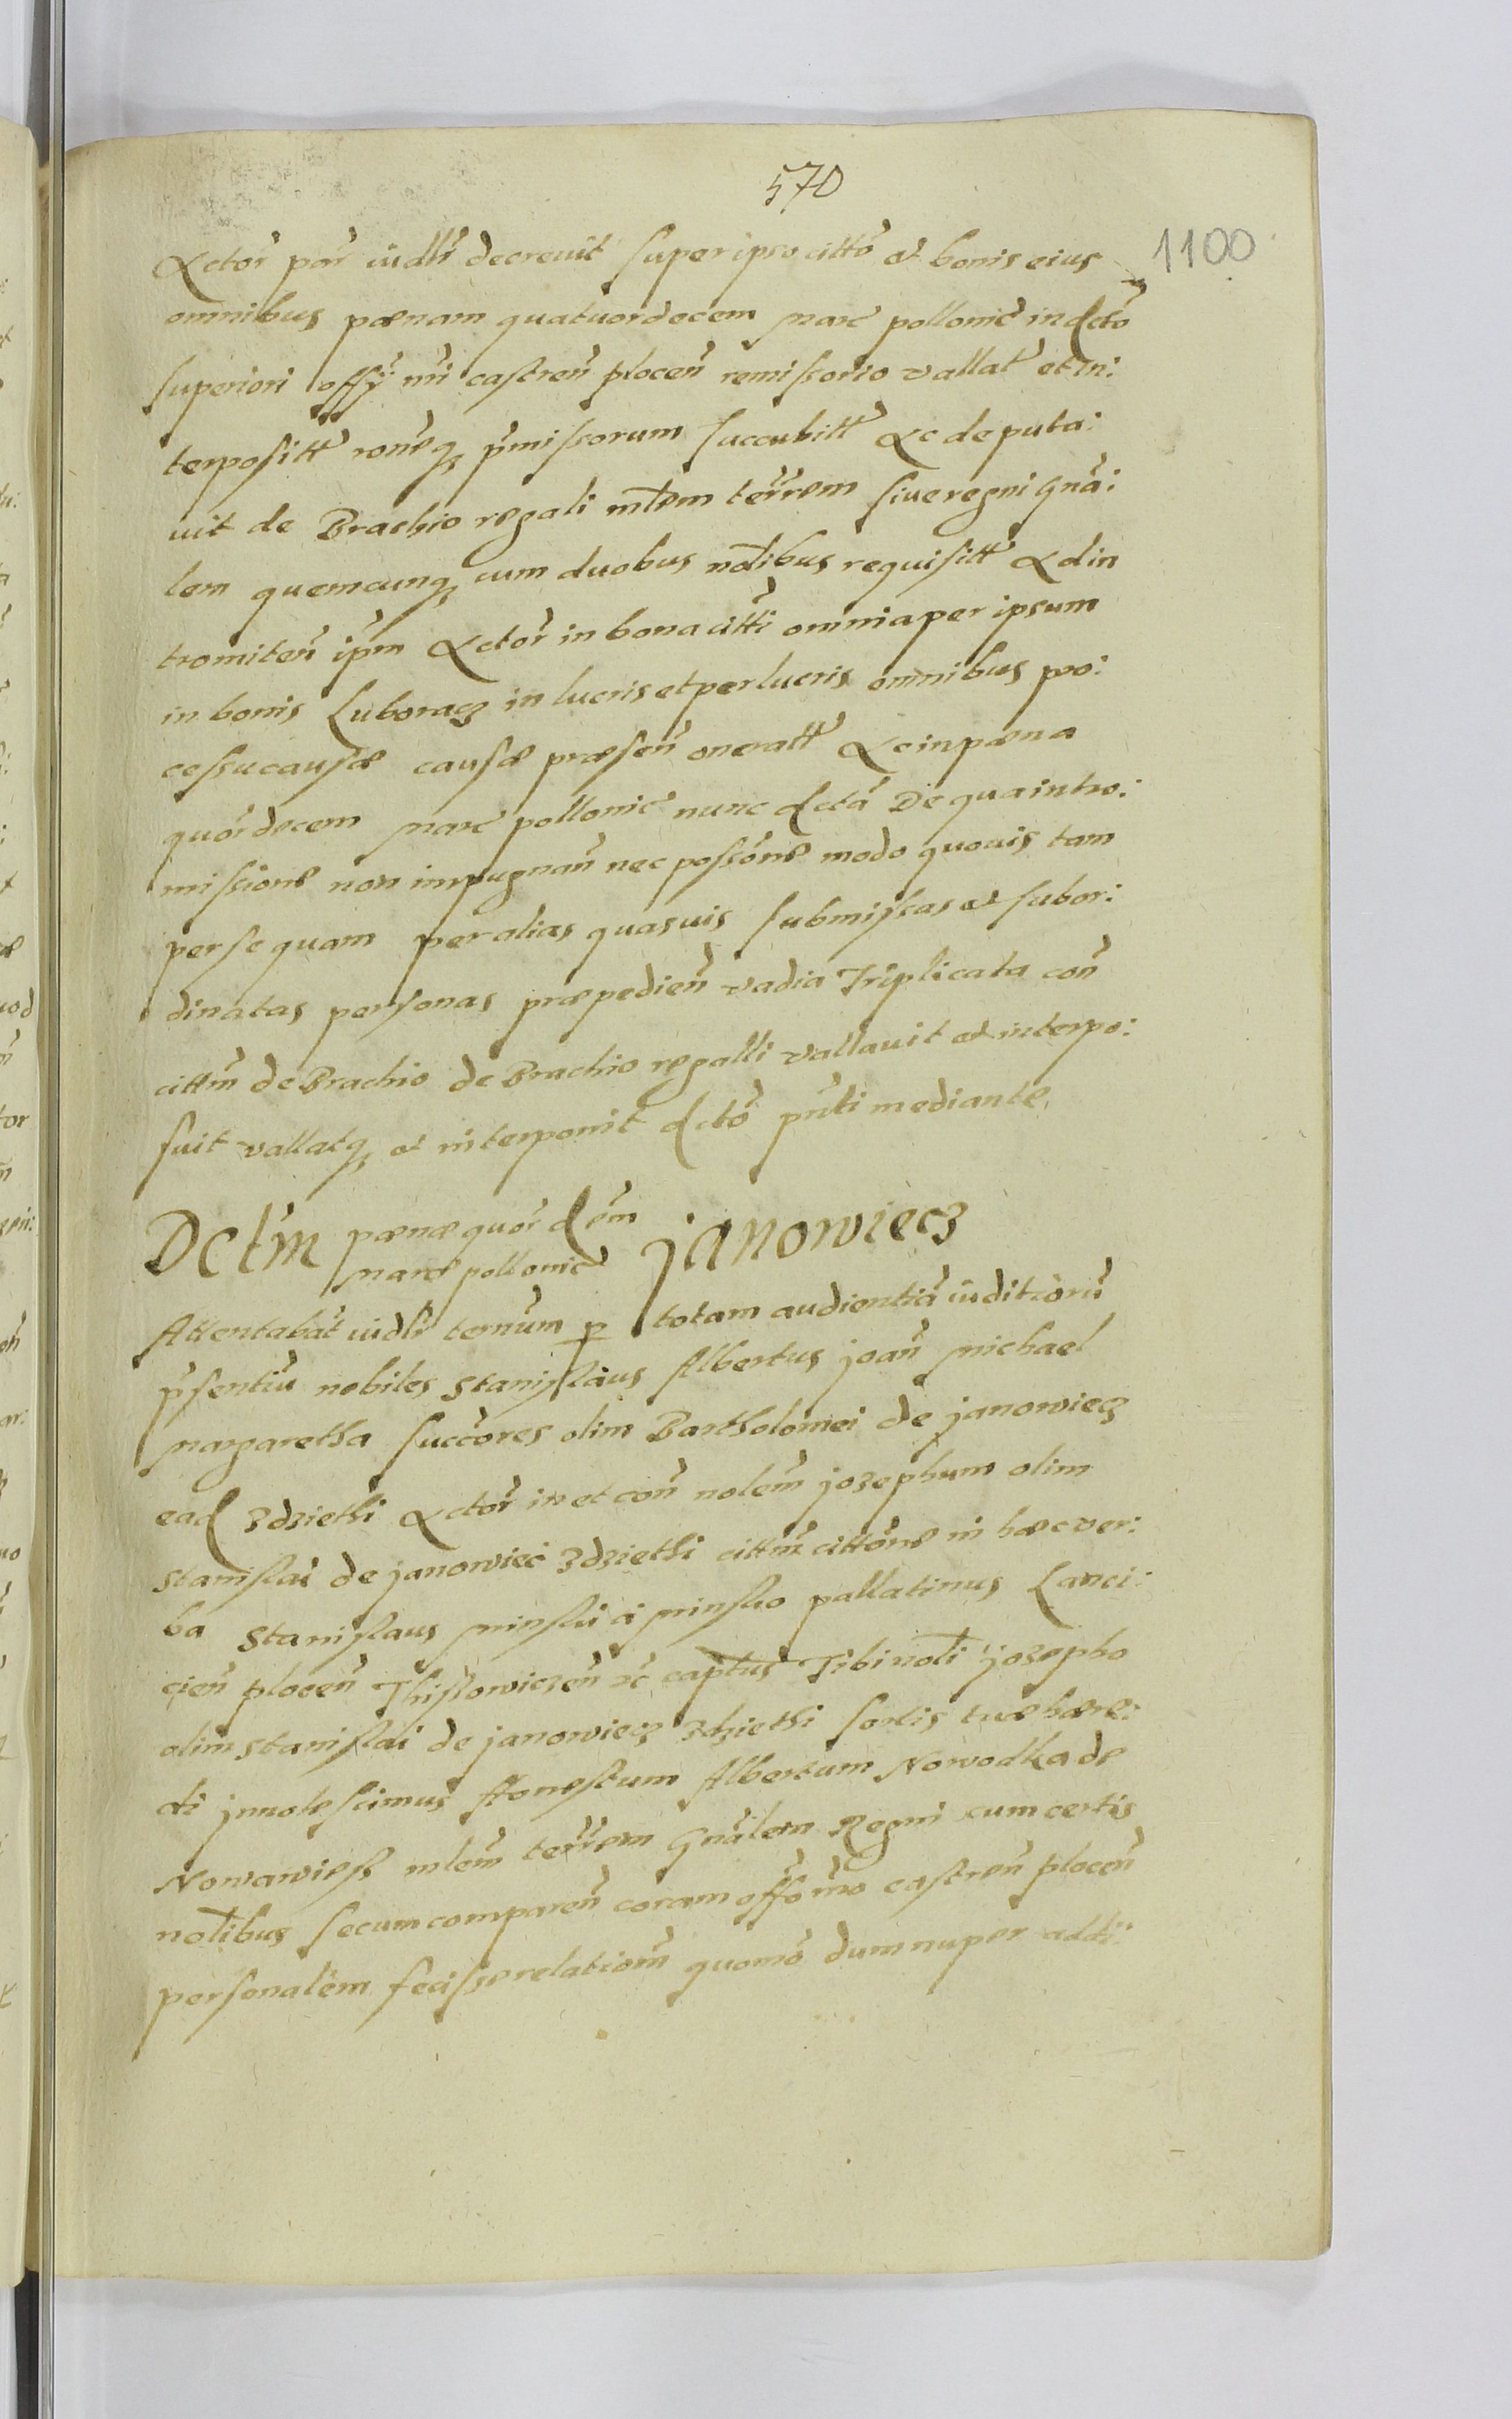 570
1100
Actor̃ par̃ iudlr̃ decreuit super ipso citto᷑ et bonis eius
omnibus pœnam quatuordecem marc̃ pollonic̃ in dcto᷑
superiori offÿ nr̃i castren̄ plocen̄ remissorio vallat᷑ et in:
terpositt᷑ rone᷑q₃ p̃missorum succubitt᷑ Ac deputa:
uit de Brachio regali mlẽm terr̃em siue regni Gnã:
lem quemcunq₃ cum duobus nolĩbus requisitt᷑ Ad in
tromiten̄ ip̃m Actor̃ in bona citti᷑ omnia per ipsum
in bonis Luboracz in lucris et perlucris omnibus pro:
cessu causæ causæ præsen̄ oneratt᷑ Ac in pæna
quor̃decem marc̃ pollonic̃ nunc dcta᷑ De qua intro:
missione non impugnan̄ nec possõne modo quouis tam
per se quam per alias quasuis submissas et subor:
dinatas personas præpedien̄ vadia Triplicata con̄
cittm̃ de Brachio de Brachio regalli vallauit et interpo:
suit vallatq₃ et interponit dcto᷑ pñti mediante
Dctm̃ pœnæ quor̃ dẽm
marc̃ pollonic̃ Janowiecz
Attentabat̃ iudlr̃ termũm p totam audientiã iuditiorũ
p̃sentiũ nobiles Stanislaus Albertus Joan̄ Michael
Margaretha succores̃ olim Bartholomei de Janowiecz
ead Zdziethi Actor̃ in et con̄ nolẽm Jozephum olim
Stanislai de Janowiec̃ Zdziethi cittm̃ cittõne in hæc ver:
ba Stanislaus Minski a Minsko pallatinus Lanci:
cien̄ plocen̄ Thissowiczen̄ ꝛc̃ captus Tibi noli᷑ Jozepho
olim Stanislai de Janowiecz Zdziethi sortis tuæ hære:
di Innotescimus Honestum Albertum Nowodka de
Nowawiess mlẽm terr̃em Gnãlem Regni cum certis
nolĩbus secum comparen̄ coram offo᷑ nr̃o castren̄ plocen̄
personalem fecisse relationẽm quomo᷑ dum nuper addi: